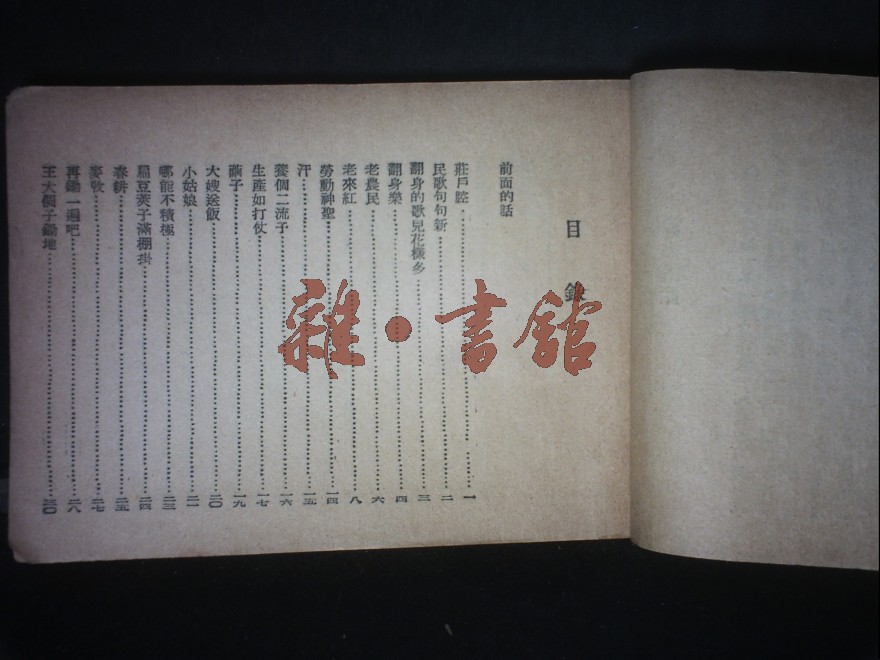 目錄
前面的話
莊戶腔⋯⋯一
民歌句句新⋯⋯二
翻身的歌兒花樣多⋯⋯三
翻身樂⋯⋯四
老農民⋯⋯六
老來紅⋯⋯八
勞動神聖⋯⋯一四
汗⋯⋯一五
養個二流子⋯⋯一六
生產如打仗⋯⋯一七
繭子⋯⋯一九
大嫂送飯⋯⋯二〇
小姑娘⋯⋯二一
哪能不積極⋯⋯二三
扁豆莢子滿棚掛⋯⋯二四
春耕⋯⋯二五
麥收⋯⋯二七
再鋤一遍吧⋯⋯二八
王大個子鋤地⋯⋯三〇
雜·書館